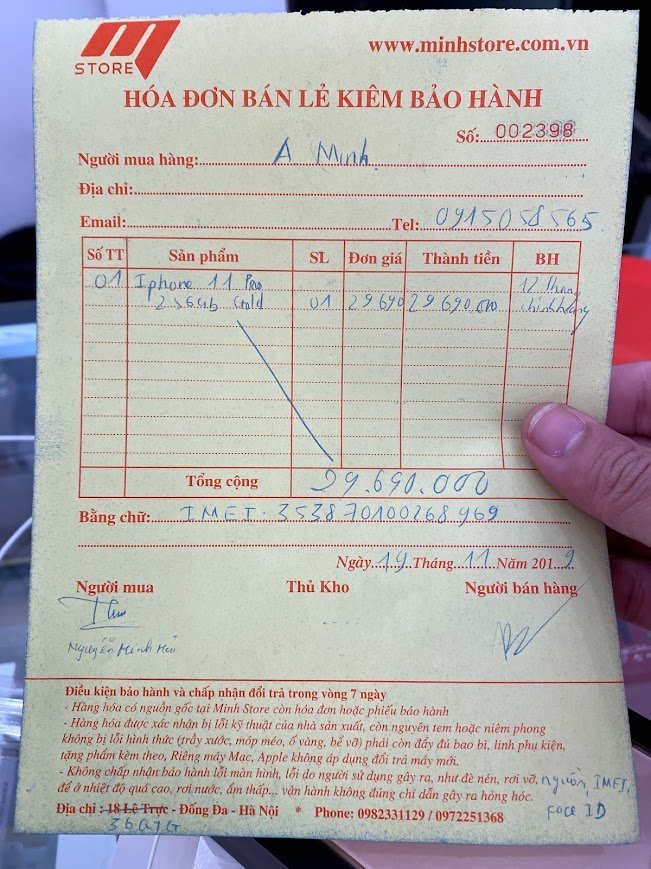 M
STORE
www.minhstore.com.vn
HÓA ĐƠN BÁN LẺ KIÊM BẢO HÀNH
Số: 002398
Người mua hàng: A Minh.
Địa chỉ:
Email: Tel: 0915058565
Số TT Sản phẩm SL Đơn giá Thành tiền BH
01 Iphone 11 Pro 12 tháng
256Gb Gold 01 29690 29690.000 chính hãng
Tổng cộng 29.690.000
Bằng chữ: IMEI: 353870100268969
Ngày 19 Tháng 11 Năm 2019
Người mua Thủ Kho Người bán hàng
Nguyễn Minh
Điều kiện bảo hành và chấp nhận đổi trả trong vòng 7 ngày
- Hàng hóa có nguồn gốc tại Minh Store còn hóa đơn hoặc phiếu bảo hành
- Hàng hóa được xác nhận bị lỗi kỹ thuật của nhà sản xuất, còn nguyên tem hoặc niêm phong
không bị lỗi hình thức (trầy xước, móp méo, ố vàng, bể vỡ) phải còn đầy đủ bao bì, linh phụ kiện,
tặng phẩm kèm theo, Riêng máy Mac, Apple không áp dụng đổi trả máy mới.
- Không chấp nhận bảo hành lỗi màn hình, lỗi do người sử dụng gây ra, như đè nén, rơi vỡ, nguồn, IMEI,
để ở nhiệt độ quá cao, rơi nước, ẩm thấp... vận hành không đúng chỉ dẫn gây ra hỏng hóc. Face ID
Địa chỉ : 18 Lê Trực - Đống Đa - Hà Nội * Phone: 0982331129 / 0972251368